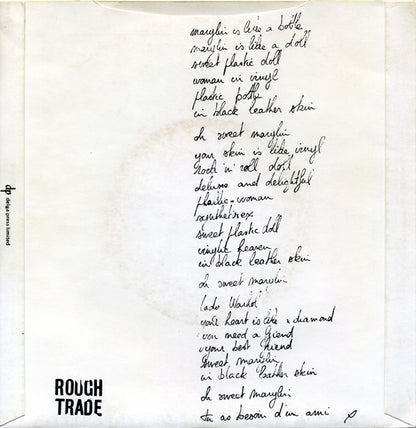 marylin is like a bottle
marylin is like a doll
sweet plastic doll
woman in vinyl
plastic bottle
in black leather skin
oh sweet marylin
your skin is like vinyl
Rock 'n' roll doll
deluxe and delightful
plastic-woman
synthetisex
sweet plastic doll
vinylic heaven
in black leather skin
oh sweet marylin
lado Warhol
your heart is like a diamond
you need a friend
your best friend
sweet marylin
in black leather skin
oh sweet marylin
tu as besoin d'un ami
dp delga press limited
ROUGH
TRADE